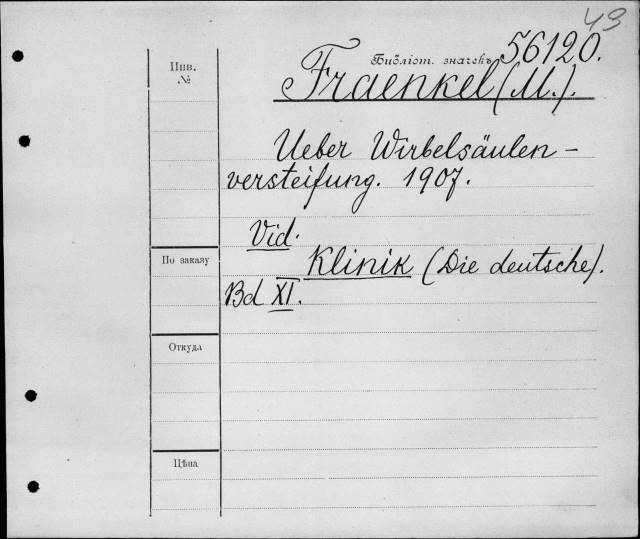 43
Библіот. значекъ 56120.
Инв.
№
Fraenkel (M.).
Ueber Wirbelsäulen-
versteifung. 1907.
Vid.
По заказу
Klinik (Die deutsche).
Bd XI.
Откуда
Цѣна